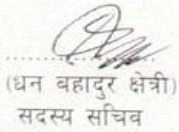 (धन बहादुर क्षेत्री)
सदस्य सचिव